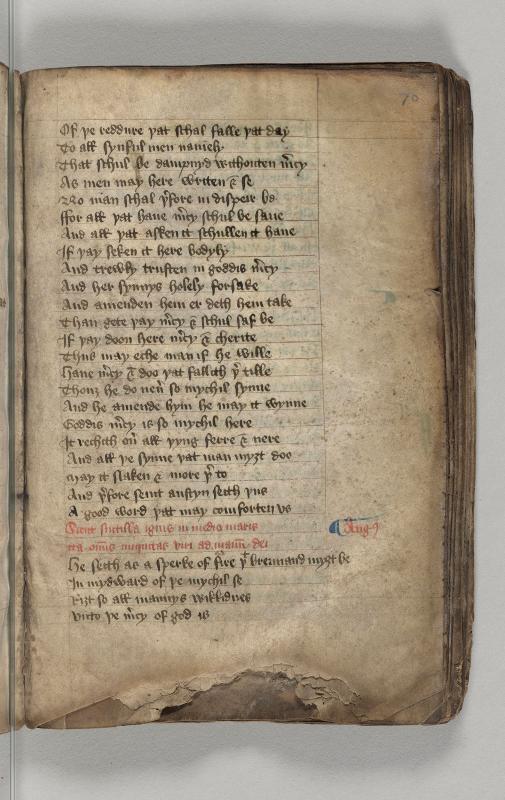 70
Of þe reddure þat schal falle þat day
To all synful men namely
That schul be dampnyd withouten m̄cy
As men may here writen & se
No man schal þ̄fore in disperr be
ffor all þat haue m̄cy schul be saue
And all þat asken it schullen it haue
If þay seken it here bodyly
And trewly trusten in goddis m̄cy
And her synnys holely forsake
And amenden hem er deth hem take
Than gete þay m̄cy & schul saf be
If þay doon here m̄cy & cherite
Thus may eche man if he wille
Haue m̄cy & doo þat fallith þ̄ tille
Thouȝ he do neū so mychil synne
And he amende hym he may it wynne
Goddis m̄cy is so mychil here
It rechith oū all þyng ferre & nere
And all þe synne þat man myȝt doo
may it slaken & more þ̄ to
And þ̄fore seint austyn seith þus
A good word þat may comforten vs
Sicut scintilla ignis in medio maris
ita om̄is iniquitas viri ad mīam dei
Aug9
He seith as a sperke of fire þ̄ brennand myȝt be
In mydward of þe mychil se
Riȝt so all mannys wikkidnes
vnto þe m̄cy of god is